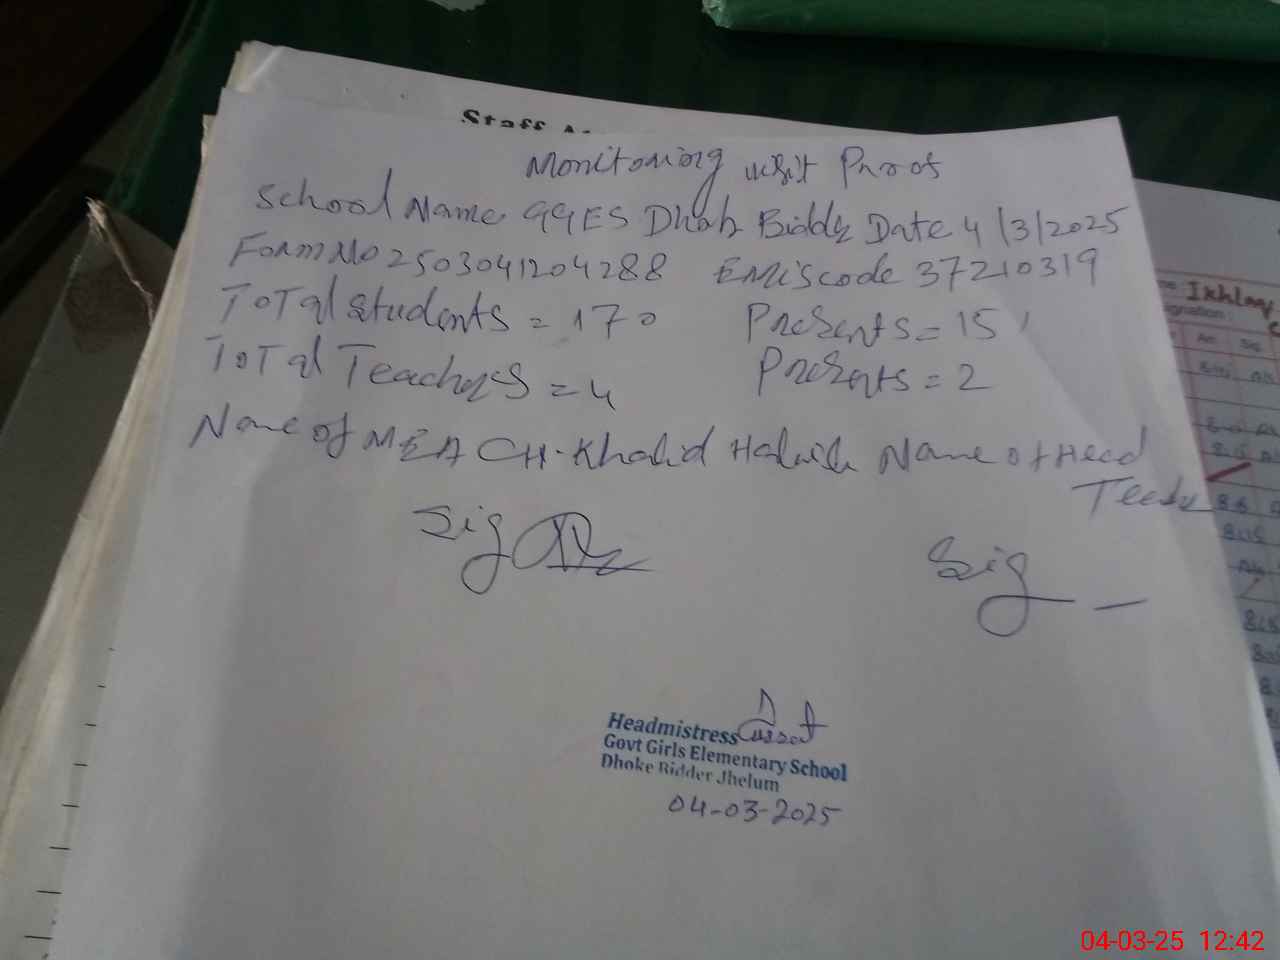 Staff
Monitoring visit Proof
School Name GGES Dhok Bidder Date 4/3/2025
Form No 2503041204288 EMIS code 37210319
Total Students = 170 Presents = 151
Total Teachers = 4 Presents = 2
Name of MEA CH. Khalid Name of Head
Teacher
Sig
Sig
Headmistress
Govt Girls Elementary School
Dhoke Ridder Jhelum
04-03-2025
Ikhlaq
ignation:
Arr. Sig.
04-03-25 12:42